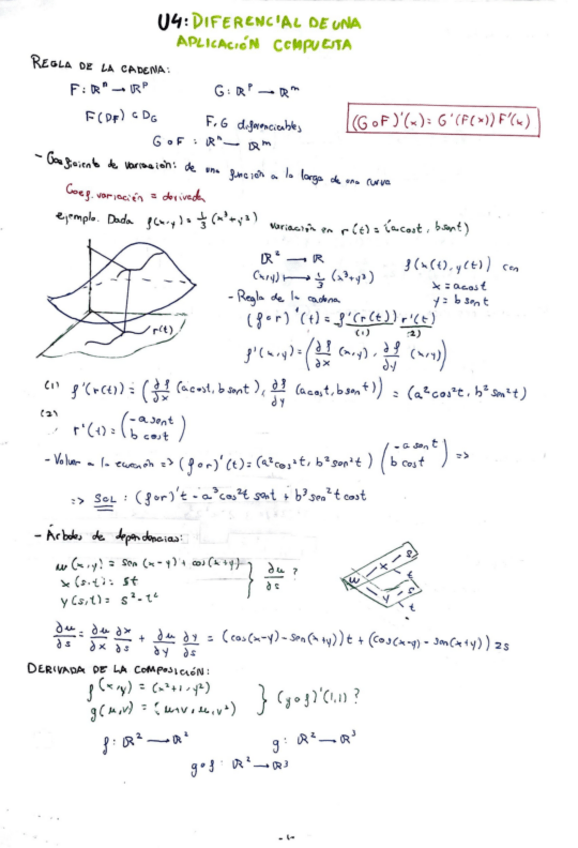 U4: DIFERENCIAL DE UNA
APLICACIÓN COMPUESTA
REGLA DE LA CADENA:
F: ℝⁿ → ℝᵖ G: ℝᵖ → ℝᵐ
F(D_F) ⊂ D_G F, G diferenciables (G∘F)'(x) = G'(F(x)) F'(x)
G∘F : ℝⁿ → ℝᵐ
- Coeficiente de variación: de una función a lo largo de una curva
Coef. variación = derivada
ejemplo. Dada f(x,y) = 1/3 (x³+y³) variación en r(t) = (a cost, b sent)
ℝ² → ℝ f(x(t), y(t)) con
(x,y) ↦ 1/3 (x³+y³) x = a cost
- Regla de la cadena y = b sent
(f∘r)'(t) = f'(r(t)) r'(t)
(1) (2)
r(t)
f'(x,y) = (∂f/∂x (x,y), ∂f/∂y (x,y))
(1) f'(r(t)) = (∂f/∂x (a cost, b sent), ∂f/∂y (a cost, b sent)) = (a² cos²t, b² sen²t)
(2) r'(t) = (-a sent
b cost)
- Volver a la ecuación => (f∘r)'(t) = (a² cos²t, b² sen²t) (-a sent
b cost) =>
=> SOL: (f∘r)'t - a³cos²t sent + b³ sen²t cost
- Árboles de dependencias:
u(x,y) = sen(x-y) + cos(x+y)
x(s,t) = st } ∂u/∂s ?
y(s,t) = s² - t²
u x s t
y s t
∂u/∂s = ∂u/∂x ∂x/∂s + ∂u/∂y ∂y/∂s = (cos(x-y) - sen(x+y)) t + (cos(x-y) - sen(x+y)) 2s
DERIVADA DE LA COMPOSICIÓN:
f(x,y) = (x²+1, y²)
g(u,v) = (u+v, u, v²) } (g∘f)'(1,1) ?
f: ℝ² → ℝ² g: ℝ² → ℝ³
g∘f : ℝ² → ℝ³
-1-